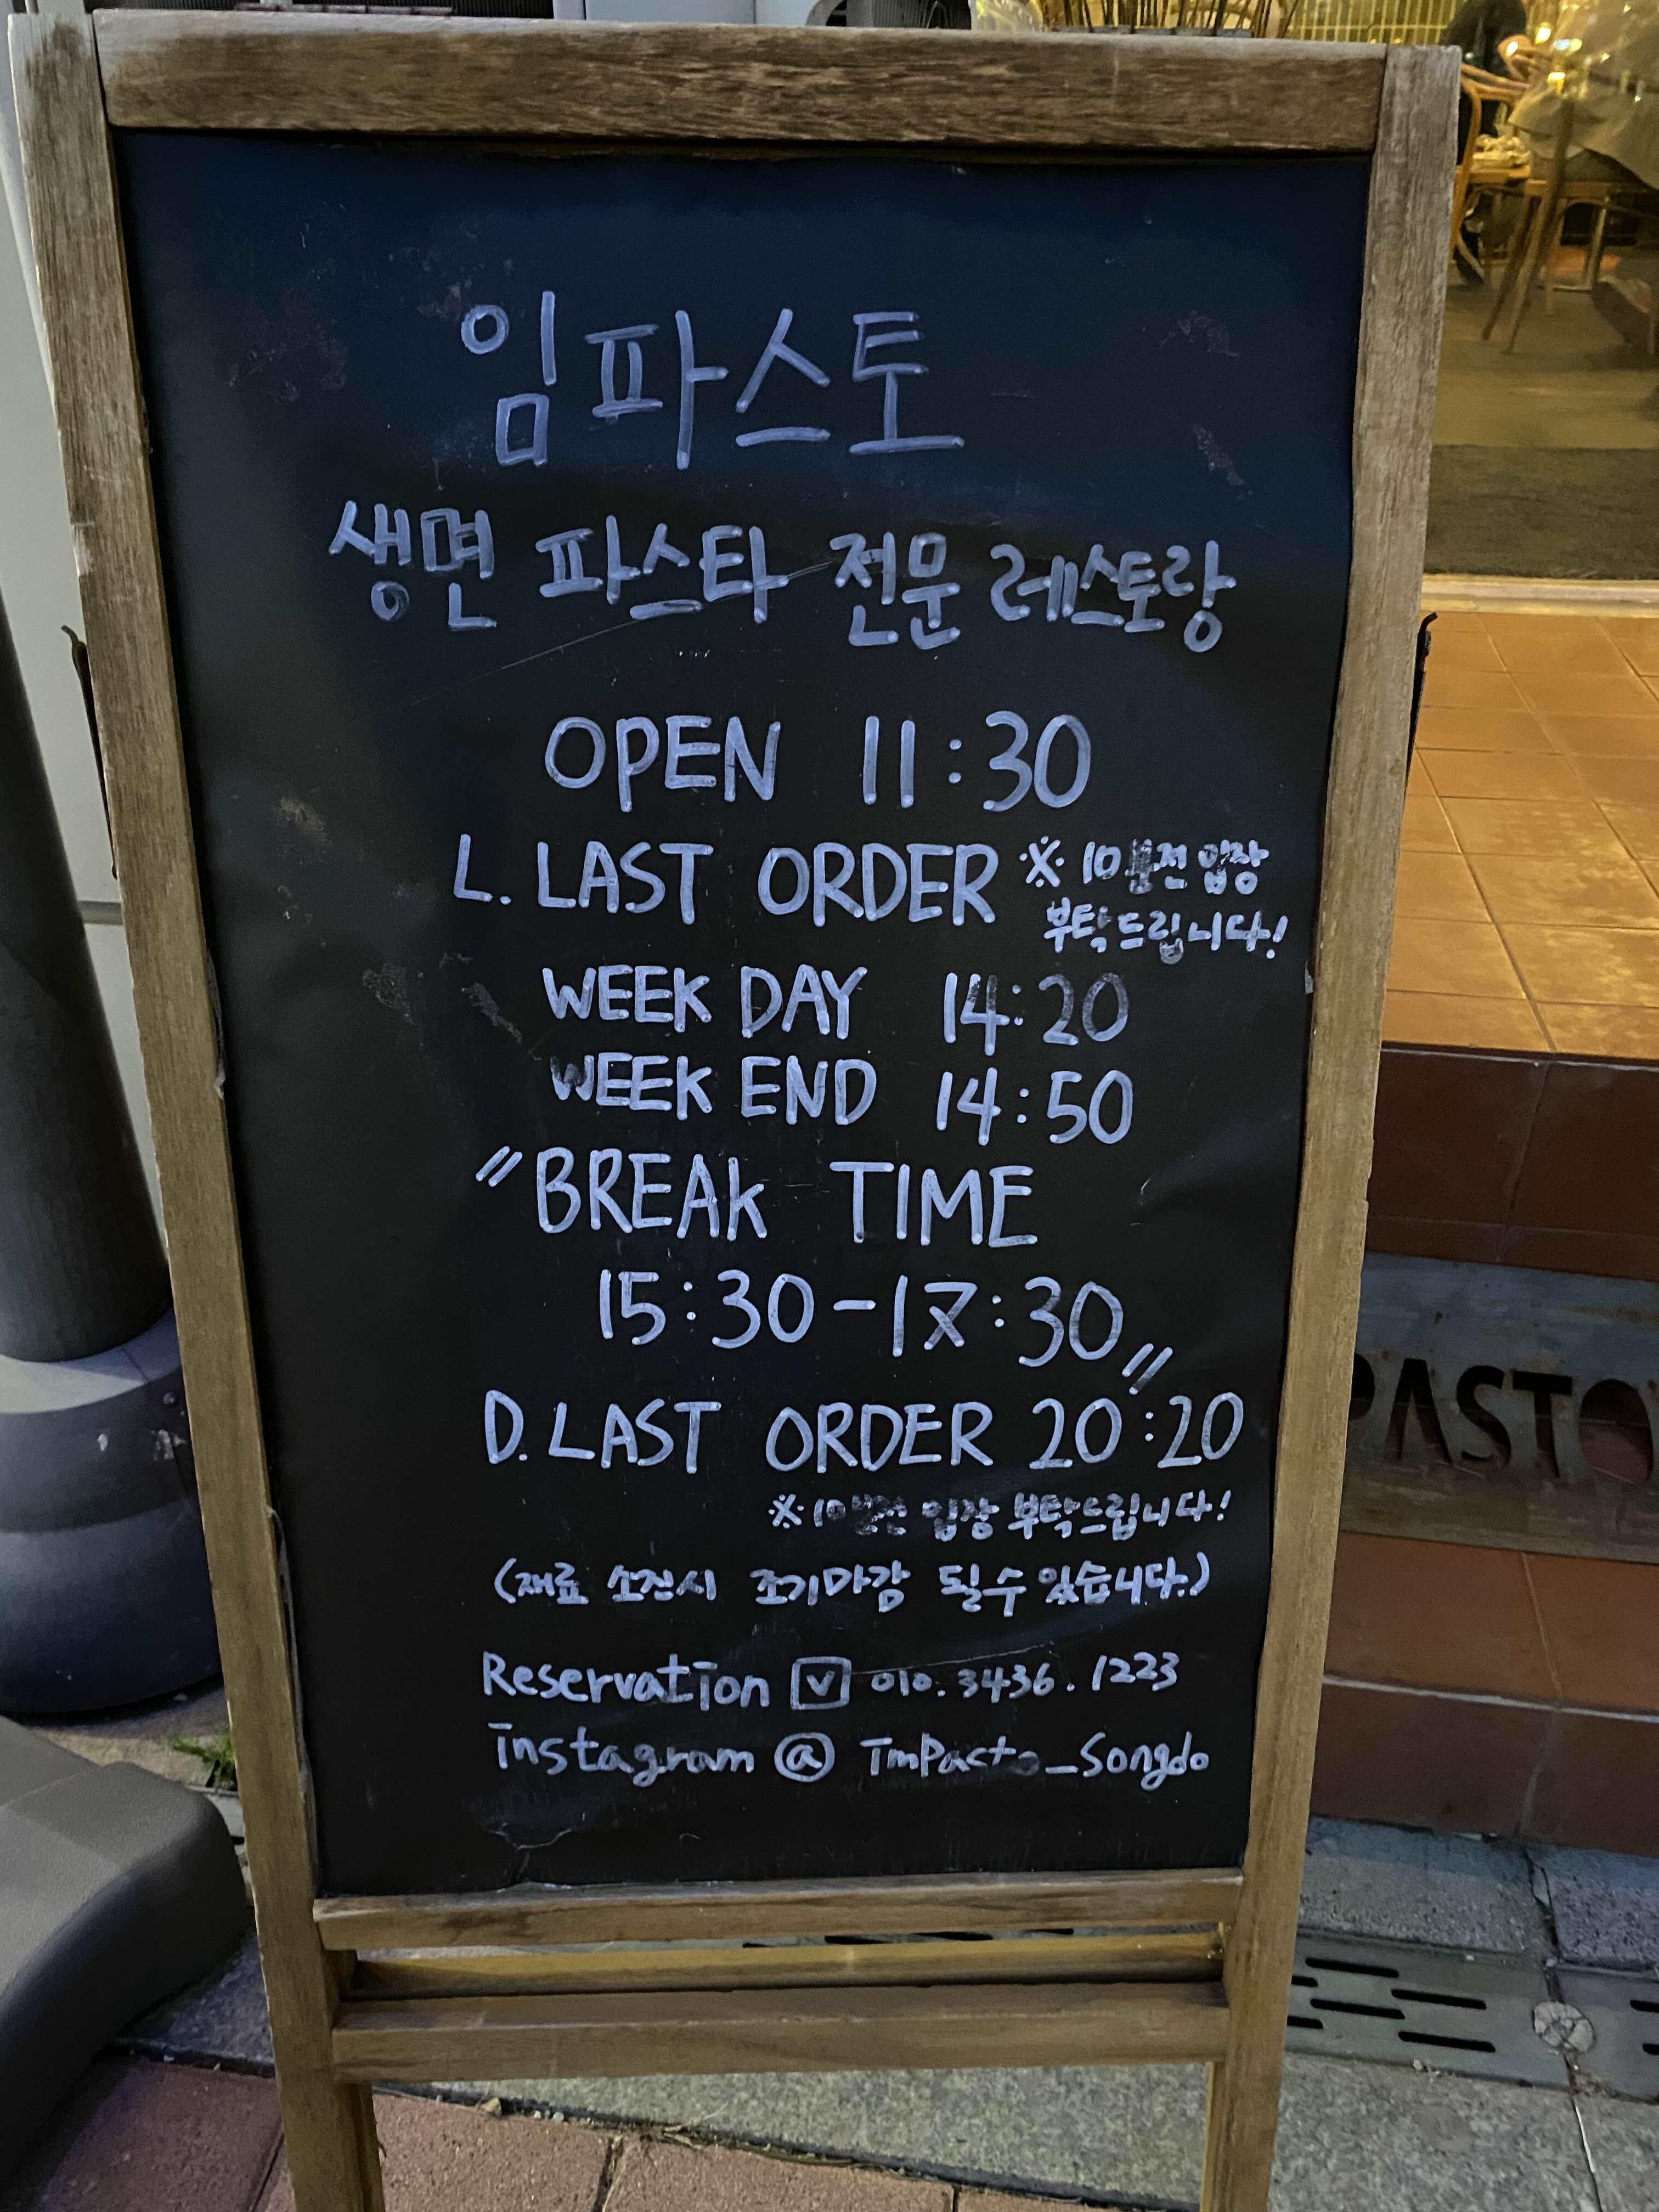 임파스토
생면 파스타 전문 레스토랑
OPEN 11:30
L. LAST ORDER ※ 10분전 입장
부탁드립니다!
WEEK DAY 14:20
WEEK END 14:50
"BREAK TIME
15:30-17:30"
D. LAST ORDER 20:20
※10분전 입장 부탁드립니다!
(재료 소진시 조기마감 될수 있습니다.)
Reservation V 010.3436.1223
instagram @ ImPasto_Songdo
PASTO